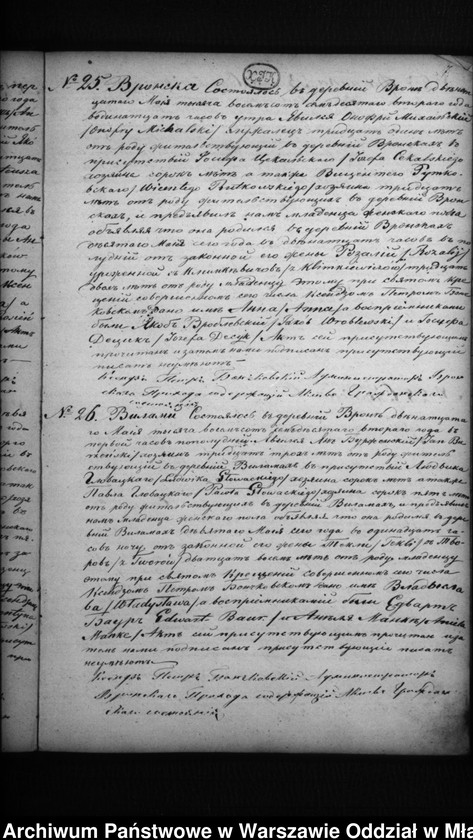 № 25. Вронска Состоялось въ деревнѣ Вронѣ двѣна-
цатого Мая тысяча восемьсотъ семьдесятъ второго года въ
одинадцать часовъ утра. Явился Онофрій Михальскій
/Onufry Michalski/ тридцать одинъ лѣтъ
отъ роду жительствующій въ деревнѣ Вронскахъ въ
присутствіи Іосифа Цекальскаго /Józefa Cekalskiego
сорокъ лѣтъ а также Викентего Рутков-
скаго /Wicentego Rutkowskiego/ хозяина тридцать
лѣтъ отъ роду жительствующихъ въ деревнѣ Врон-
скахъ, и предъявилъ намъ младенца женского пола
объявляя что она родился въ деревнѣ Вронскахъ
Мая сего года въ двѣнадцать часовъ въ по-
лудній отъ законной его жены Розаліи /Rozalii/
урожденной съ Климкевичовъ тридцать
двохъ лѣтъ отъ роду. Младенцу этому при святомъ кре-
щеніи совершенномъ сего числа Ксендзомъ Петромъ Бон-
ковскимъ дано имя Анна /Anna/ а воспріемниками
были Якобъ Врублевскій /Jakób Wróblewski/ и Іосифа
/Józefa/ Актъ сей присутствующимъ
прочитанъ и затѣмъ нами подписанъ присутствующіи
писать неумѣютъ
Ксендзъ Петръ Бонковскій Администраторъ Врон-
скаго Прихода содержащій Акты Гражданскаго
состоянія
№ 26. Виламы Состоялось въ деревнѣ Вронѣ двѣнадцата-
го Мая тысяча восемьсотъ семьдесятого второго года въ
первой часовъ пополудній. Явился Янъ /Jan
хозяинъ тридцать трохъ лѣтъ отъ роду житель-
ствующій въ деревнѣ Виламахъ въ присутствіи Людвика
Гловацкаго /Ludwika Głowackiego/ хозяина сорокъ лѣтъ а также
Павла Гловацкаго /Pawła Głowackiego/ хозяина сорокъ пять лѣтъ
отъ роду жительствующихъ въ деревнѣ Виламахъ и предъявилъ
намъ младенца женского пола объявляя что она родился въ дерев-
нѣ Виламахъ Мая сего года въ одинадцать ча-
совъ ночи отъ законной его жены Теклы /Tekli/
двадцать восемь лѣтъ отъ роду. младенцу
этому при святомъ Крещеніи совершенномъ сего числа
Ксендзомъ Петромъ Бонковскимъ дано имя Владысла-
ва /Władysława/ а воспріемниками были Едвартъ
Бауръ /Edwart Baur/ и Анѣля /Aniela
Актъ сей присутствующимъ прочитанъ и за-
тѣмъ нами подписанъ присутствующіи писать
неумѣютъ
Ксендзъ Петръ Бонковскій Администраторъ
Вронскаго Прихода содержащій Акты Граждан-
скаго состоянія
Archiwum Państwowe w Warszawie Oddział w Mła